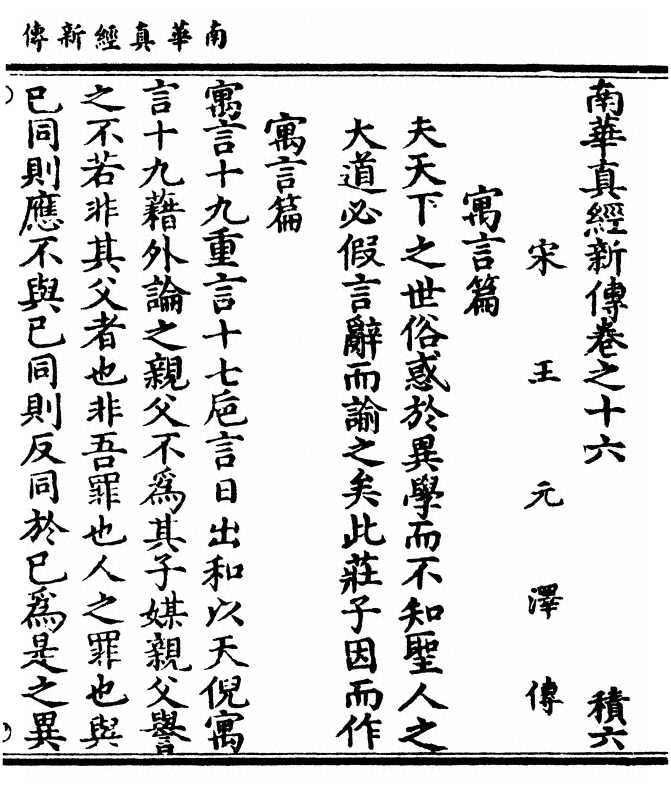 南華真經新傳
南華真經新傳卷之十六
積六
宋王元澤傳
寓言篇
夫天下之世俗惑於異學而不知聖人之
大道必假言辭而諭之矣此莊子因而作
寓言篇
寓言十九重言十七巵言日出和以天倪寓
言十九藉外論之親父不爲其子媒親父譽
之不若非其父者也非吾罪也人之罪也與
已同則應不與已同則反同於已爲是之異